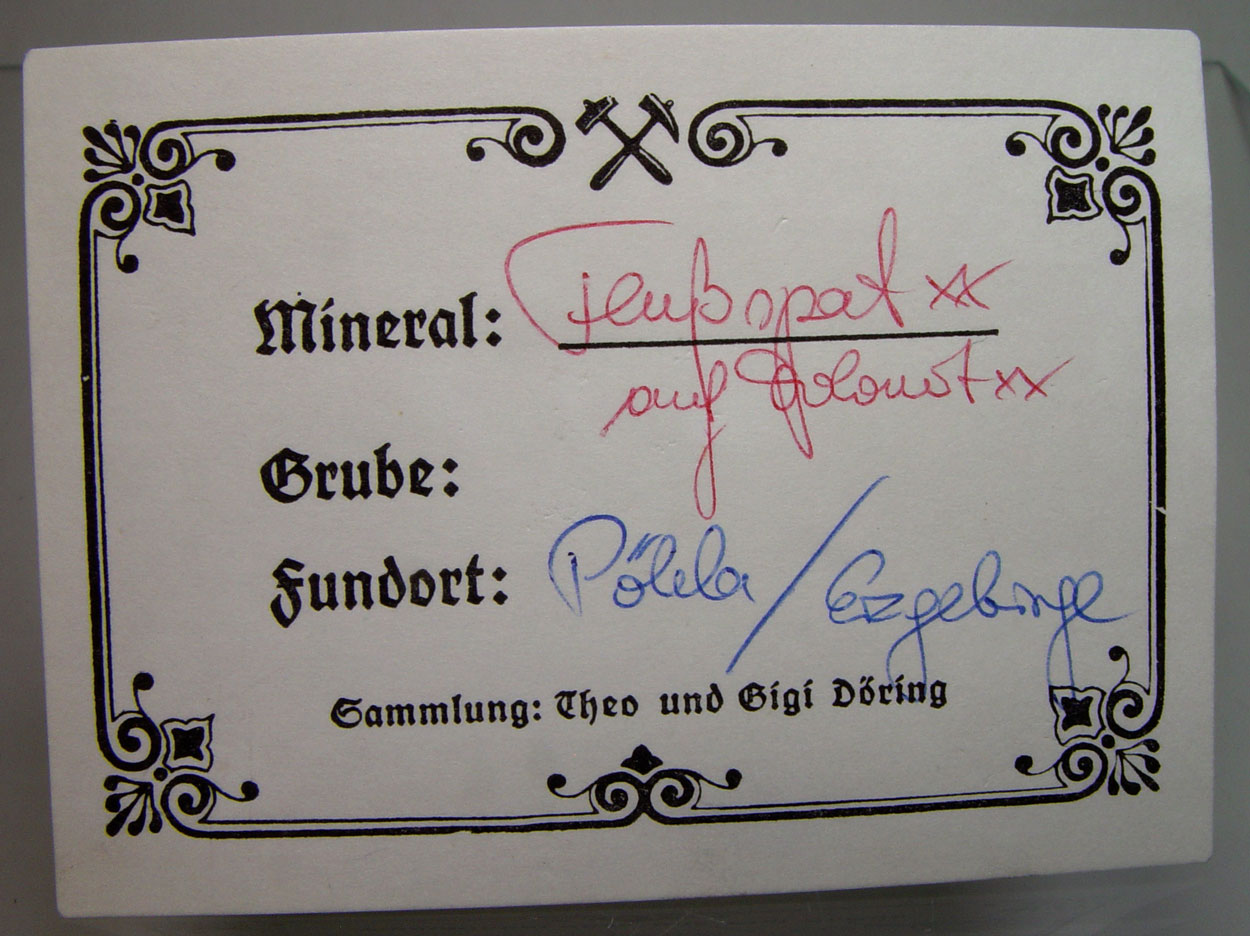 Mineral: Flußspat xx
auf Dolomit xx
Grube:
Fundort: Pöhla / Erzgebirge
Sammlung: Theo und Gigi Döring